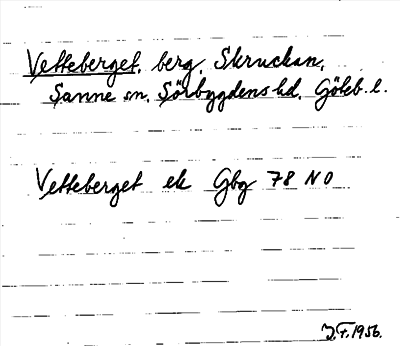 Vetteberget, berg, Skruckan,
Sanne sn. Sörbygdens hd. Göteb. l.
Vetteberget ek Gbg 78 NO
J.F. 1956.